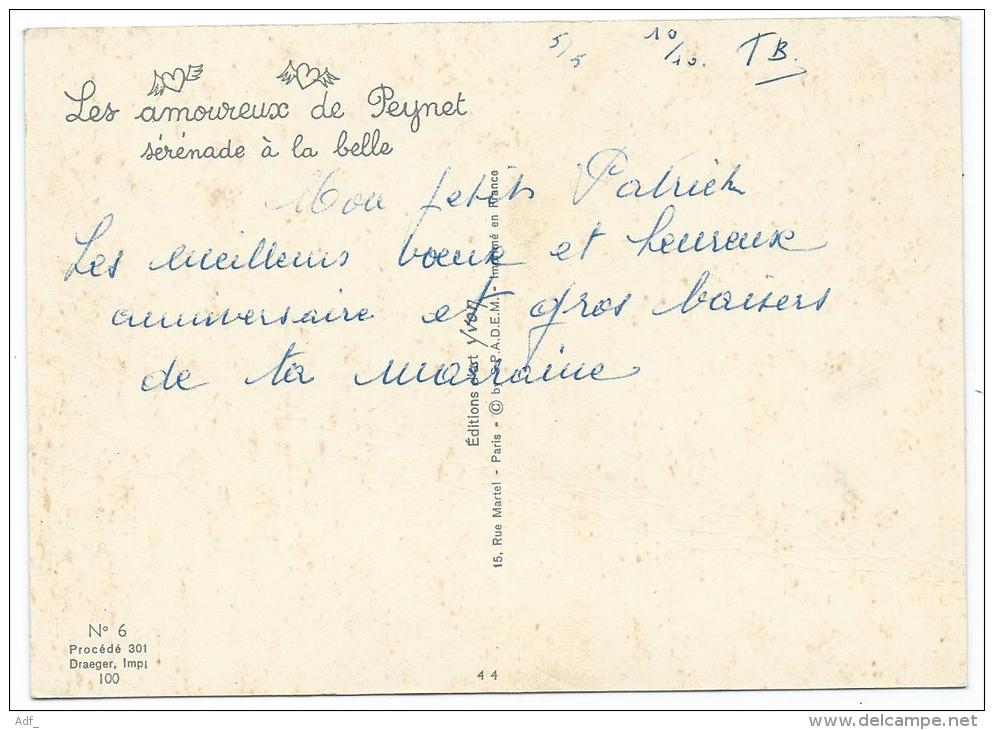 5/5 10/10. TB.
Les amoureux de Peynet
sérénade à la belle
Mon petit Patrick
Les meilleurs vœux et heureux
anniversaire et gros baisers
de ta marraine
Éditions d'art Yvon
15, Rue Martel - Paris - © by S.P.A.D.E.M. - Imprimé en France
N° 6
Procédé 301
Draeger, Imp
100
44
Adf_
www.delcampe.net